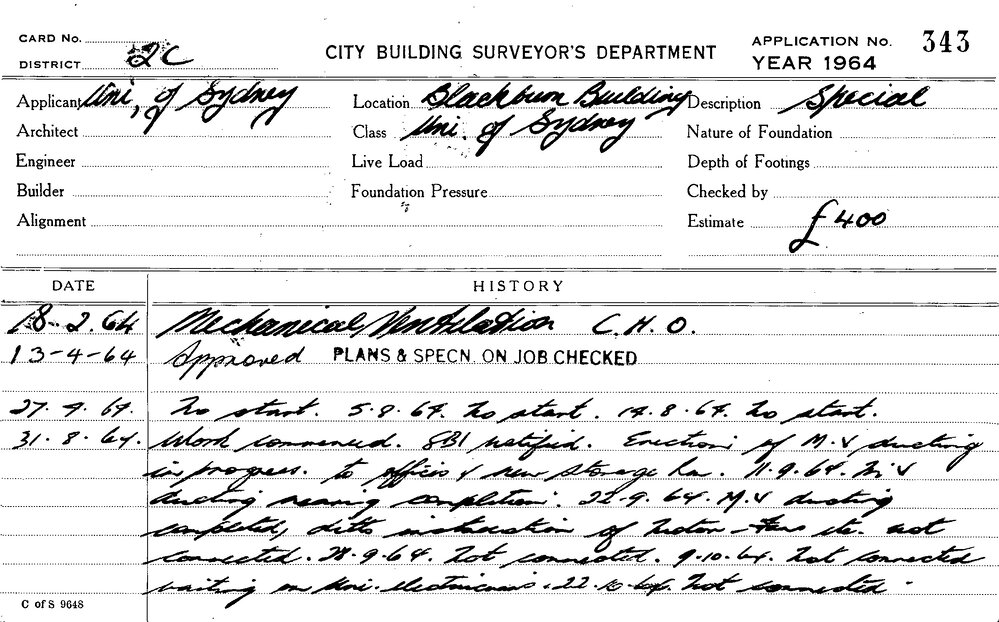 CARD No.
DISTRICT 2C
CITY BUILDING SURVEYOR'S DEPARTMENT
APPLICATION No. 343
YEAR 1964
Applicant Uni, of Sydney
Location Blackburn Building
Description Special
Architect
Class Uni. of Sydney
Nature of Foundation
Engineer
Live Load
Depth of Footings
Builder
Foundation Pressure
Checked by
Alignment
Estimate £400
DATE HISTORY
18-2.64 Mechanical Ventilation C.H.O.
13-4-64 Approved PLANS & SPECN. ON JOB CHECKED
No start. 5.8.64. No start. 14.8.64. No start.
31.8.64. Work commenced. SBI notified. Erection of M.V ducting
in progress. to offices & new storage rm. 11.9.64. M.V
ducting nearing completion. 22.9.64. M.V ducting
completed, ditto of motor fans etc. not
connected. 28.9.64. Not connected. 9.10.64. Not connected
waiting on Uni. electricians. 22.10.64. Not connected.
C of S 9648